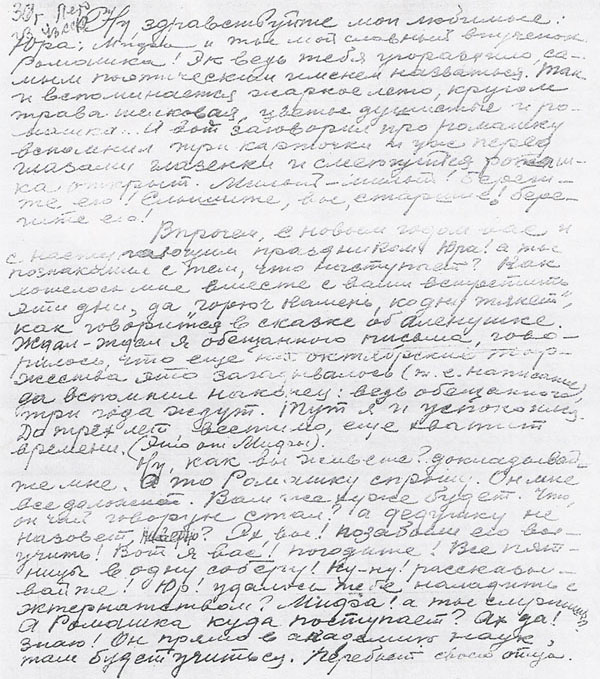 Ну здравствуйте мои любимые:
Юра; Мифа и ты мой славный внученок
Ромашка! Эк ведь тебя угораздило са-
мым поэтическим именем назваться! Так
и вспоминается жаркое лето, кругом
трава шелковая, цветы душистые и ро-
машки... И вот заговорил про ромашку
вспомнил три карточки и уже перед
глазами глазенки и смеющийся
открыт. Милый-милый! Береги-
те его! Слышите, вы, старшие! бере-
гите его!
Впрочем, с новым годом вас и
с наступающим праздником Юра! а ты
познакомил с тем, что наступает? Как
хотелось мне вместе с вами встретить
эти дни, да "горюч камень, ко дну тянет",
как говорится в сказке об Аленушке.
Ждал-ждал я обещанного письма, гово-
рилось, что еще на октябрьские тор-
жества это загадывалось (т.е. написание)
да вспомнил наконец: ведь обещанного,
три года ждут. Тут я и успокоился.
До трех лет вестимо, еще хватит
времени. (Это от Мифы).
Ну, как вы живете? докладывай-
те мне. А то Ромашку спрошу. Он мне
все доложит. Вам же хуже будет. Что,
он чай говорун стал? а дедушку не
назовет, ? Ах вы! позабыли его вы-
учить! Вот я вас! погодите! Все пят-
ницы в одну соберу! Ну-ну! рассказы-
вайте! Юр! удалось тебе наладить с
экстернатством? Мифа! а ты
А Ромашка куда поступает? Ах да!
знаю! Он прямо в академию наук,
там будет учиться. своего отца.